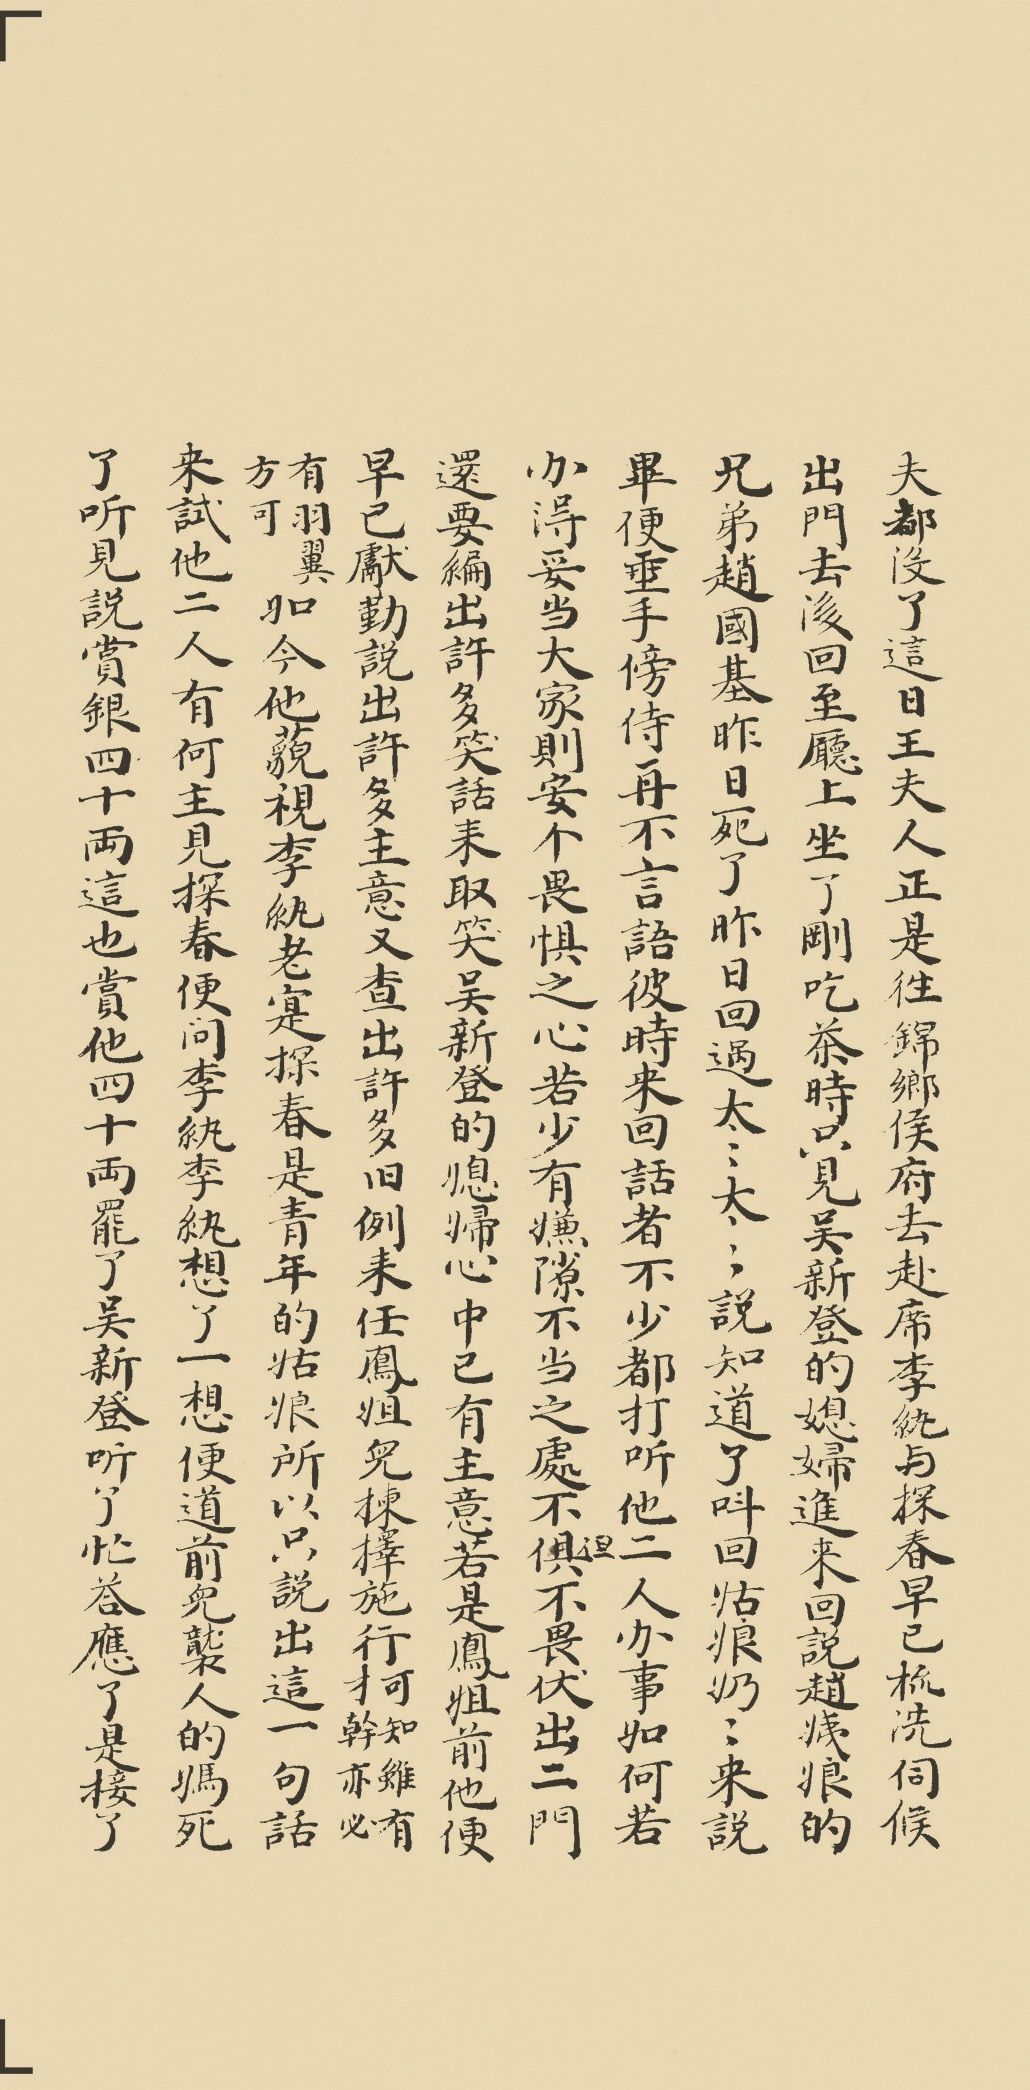 夫都没了這日王夫人正是徃錦鄉侯府去赴席李紈与探春早已梳洗伺候
出門去後回至廳上坐了剛吃茶時只見吴新登的媳婦進来回説趙姨娘的
兄弟趙國基昨日死了昨日回過太〻太〻説知道了呌回姑娘奶〻来説
畢便垂手傍侍再不言語彼時来回話者不少都打听他二人办事如何若
办淂妥当大家則安个畏惧之心若少有嫌隙不当之處不但不畏伏出二門
還要編出許多笑話来取笑吴新登的媳婦心中已有主意若是鳳姐前他便
早已獻勤説出許多主意又查出許多旧例来任鳳姐兒揀擇施行可知雖有才幹亦必
有羽翼方可如今他藐視李紈老寔探春是青年的姑娘所以只説出這一句話
来試他二人有何主見探春便问李紈李紈想了一想便道前兒襲人的媽死
了听見説賞銀四十両這也賞他四十両罷了吴新登听了忙答應了是接了